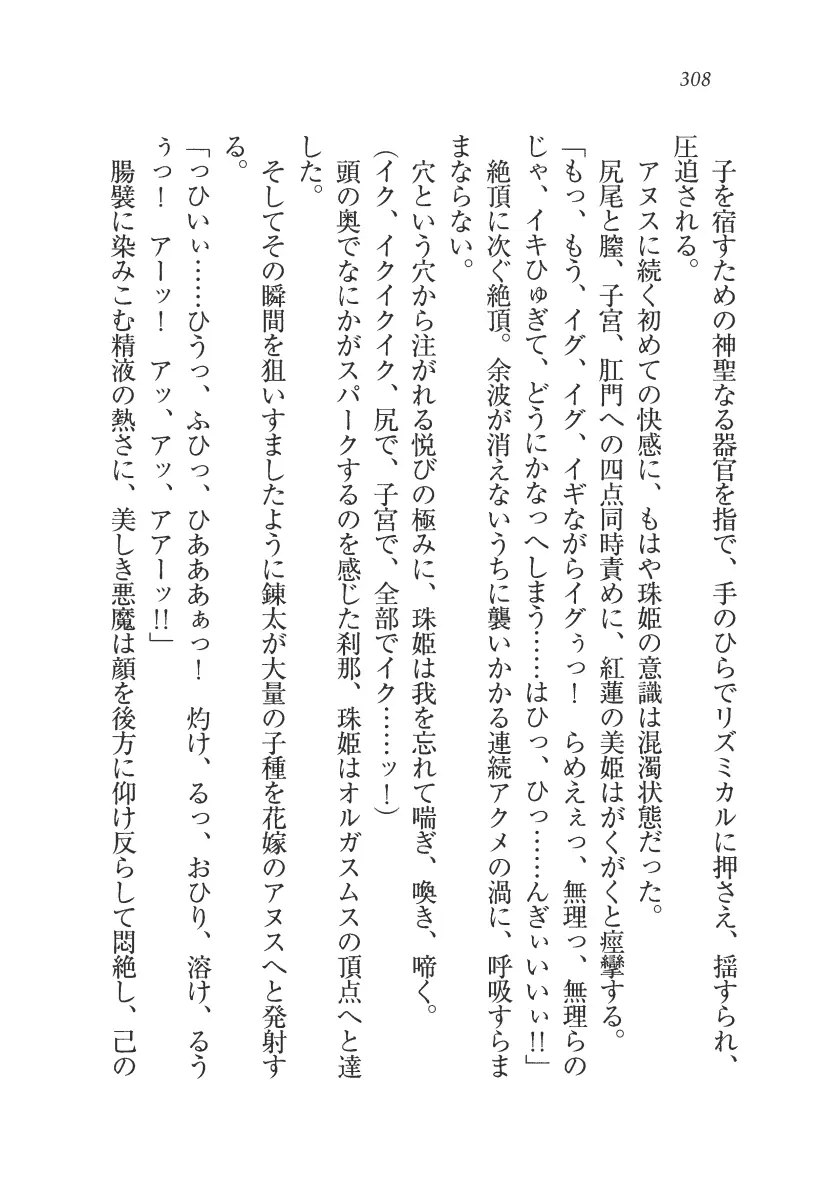 308
子を宿すための神聖なる器官を指で、手のひらでリズミカルに押さえ、揺すられ、
圧迫される。
アヌスに続く初めての快感に、もはや珠姫の意識は混濁状態だった。
尻尾と膣、子宮、肛門への四点同時責めに、紅蓮の美姫はがくがくと痙攣する。
「もっ、もう、イグ、イグ、イギながらイグぅっ！　らめえぇっ、無理っ、無理らの
じゃ、イキひゅぎて、どうにかなっへしまう……はひっ、ひっ……んぎぃいいぃ!!」
絶頂に次ぐ絶頂。余波が消えないうちに襲いかかる連続アクメの渦に、呼吸すらま
まならない。
穴という穴から注がれる悦びの極みに、珠姫は我を忘れて喘ぎ、喚き、啼く。
（イク、イクイクイク、尻で、子宮で、全部でイク……ッ！）
頭の奥でなにかがスパークするのを感じた刹那、珠姫はオルガスムスの頂点へと達
した。
そしてその瞬間を狙いすましたように錬太が大量の子種を花嫁のアヌスへと発射す
る。
「っひいぃ……ひうっ、ふひっ、ひあああぁっ！　灼け、るっ、おひり、溶け、るう
ぅっ！　アーッ！　アッ、アッ、アアーッ!!」
腸襞に染みこむ精液の熱さに、美しき悪魔は顔を後方に仰け反らして悶絶し、己の